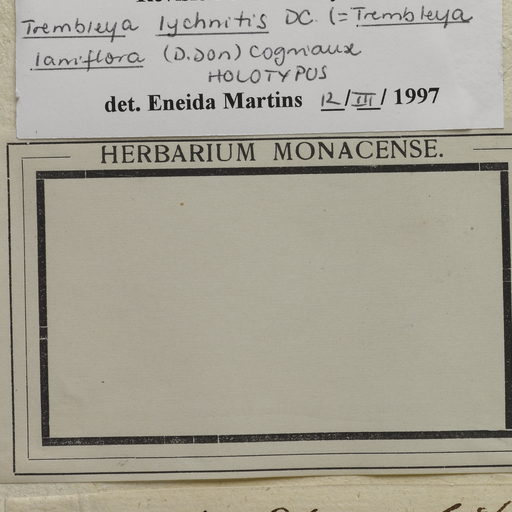 Trembleya lychnitis DC. (= Trembleya
laniflora (D.Don) Cogniaux
HOLOTYPUS
det. Eneida Martins 12/III/1997
HERBARIUM MONACENSE.